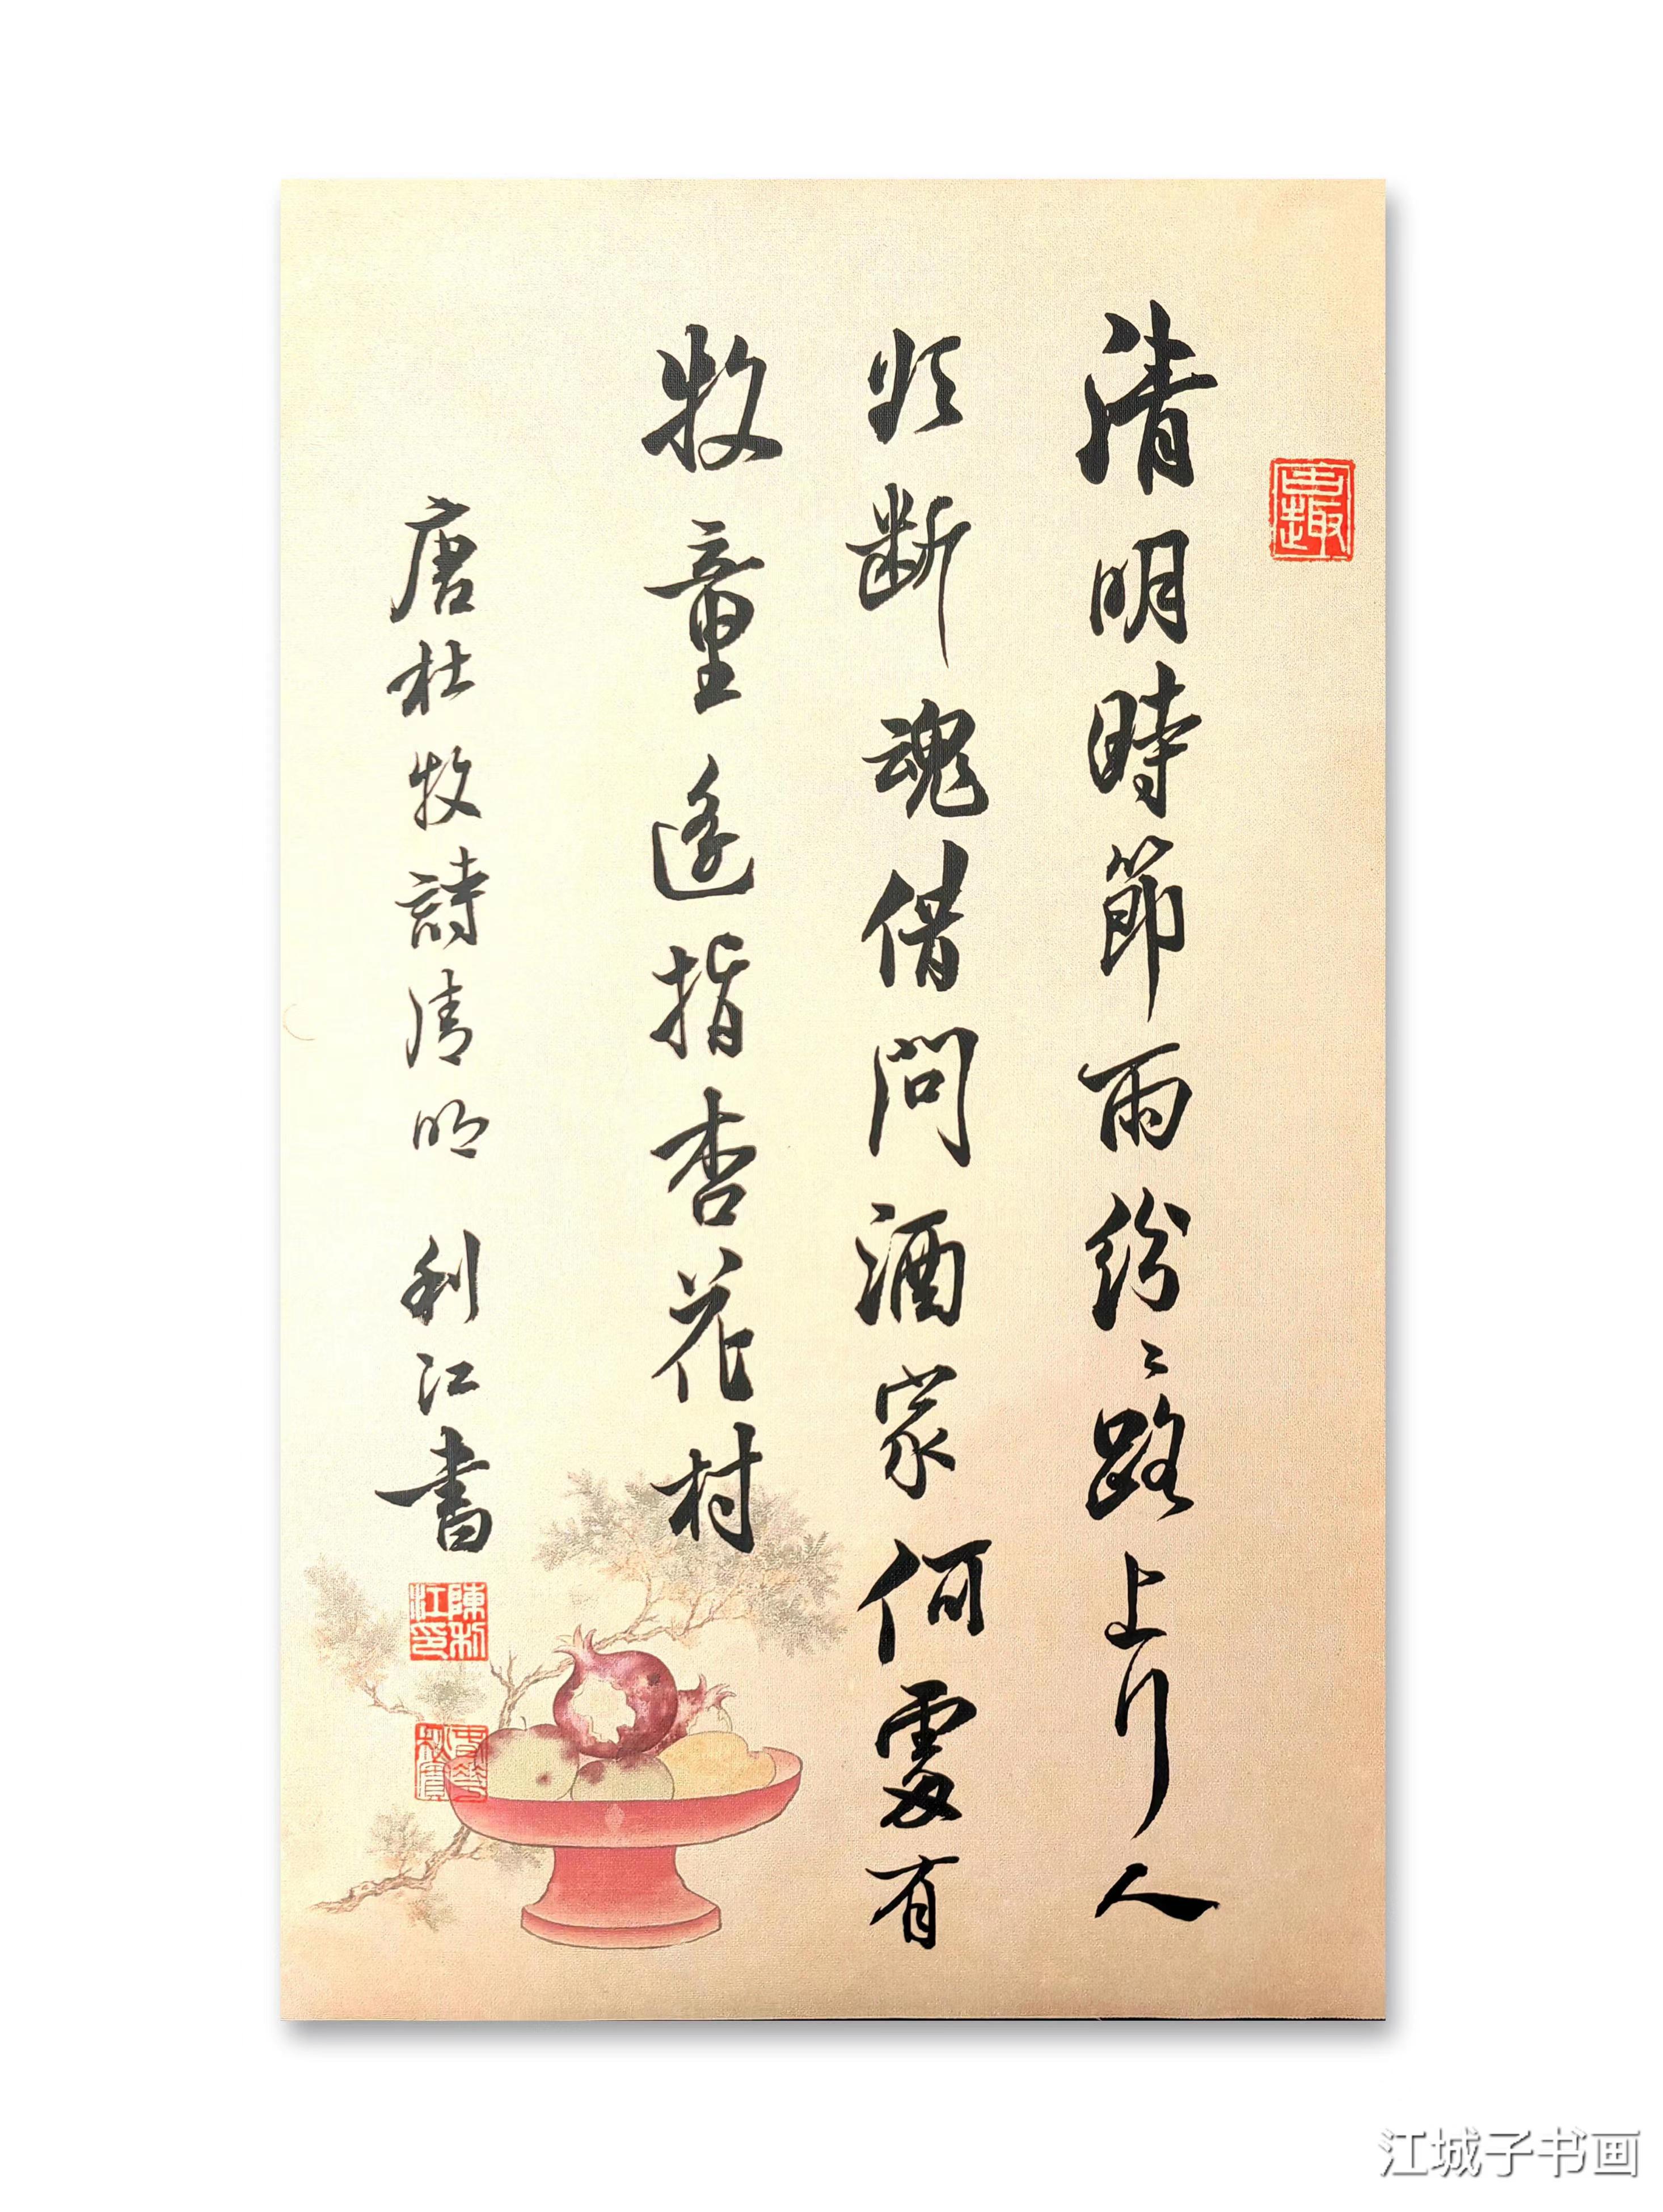 清明時節雨紛〻路上行人
欲断魂借問酒家何處有
牧童遥指杏花村
唐杜牧詩清明 利江書
陳利江印
春華秋實
江城子书画